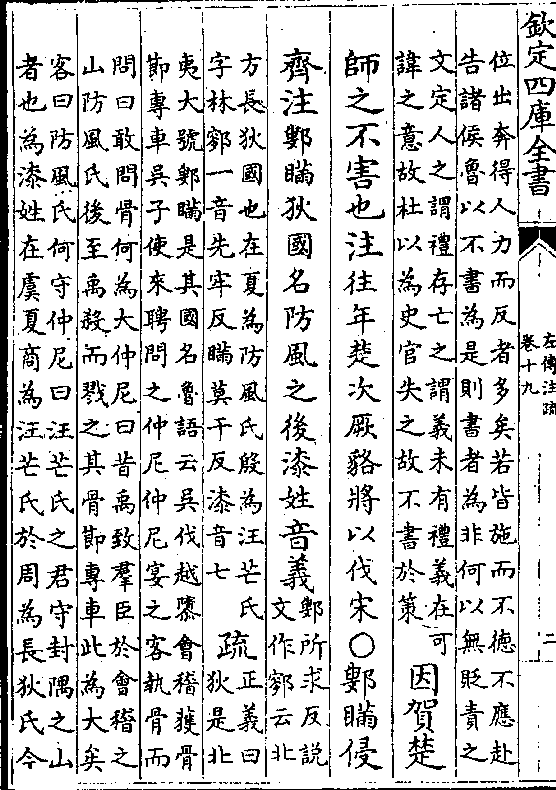 欽定四庫全書
左傳注疏
卷十九
二
位出奔得人力而反者多矣若皆施而不德不應赴
告諸侯魯以不書為是則書者為非何以無貶責之
文定人之謂禮存亡之謂義未有禮義在可
諱之意故杜以為史官失之故不書於策
因賀楚
師之不害也注往年楚次厥貉將以伐宋○鄋瞞侵
齊注鄋瞞狄國名防風之後漆姓音義
鄋所求反說
文作鄋云北
方長狄國也在夏為防風氏殷為汪芒氏
字林鄋一音先牢反瞞莫干反漆音七
疏
正義曰
狄是北
夷大號鄋瞞是其國名魯語云吳伐越隳會稽獲骨
節專車吳子使來聘問之仲尼仲尼宴之客執骨而
問曰敢問骨何為大仲尼曰昔禹致羣臣於會稽之
山防風氏後至禹殺而戮之其骨節專車此為大矣
客曰防風氏何守仲尼曰汪芒氏之君守封隅之山
者也為漆姓在虞夏商為汪芒氏於周為長狄氏今